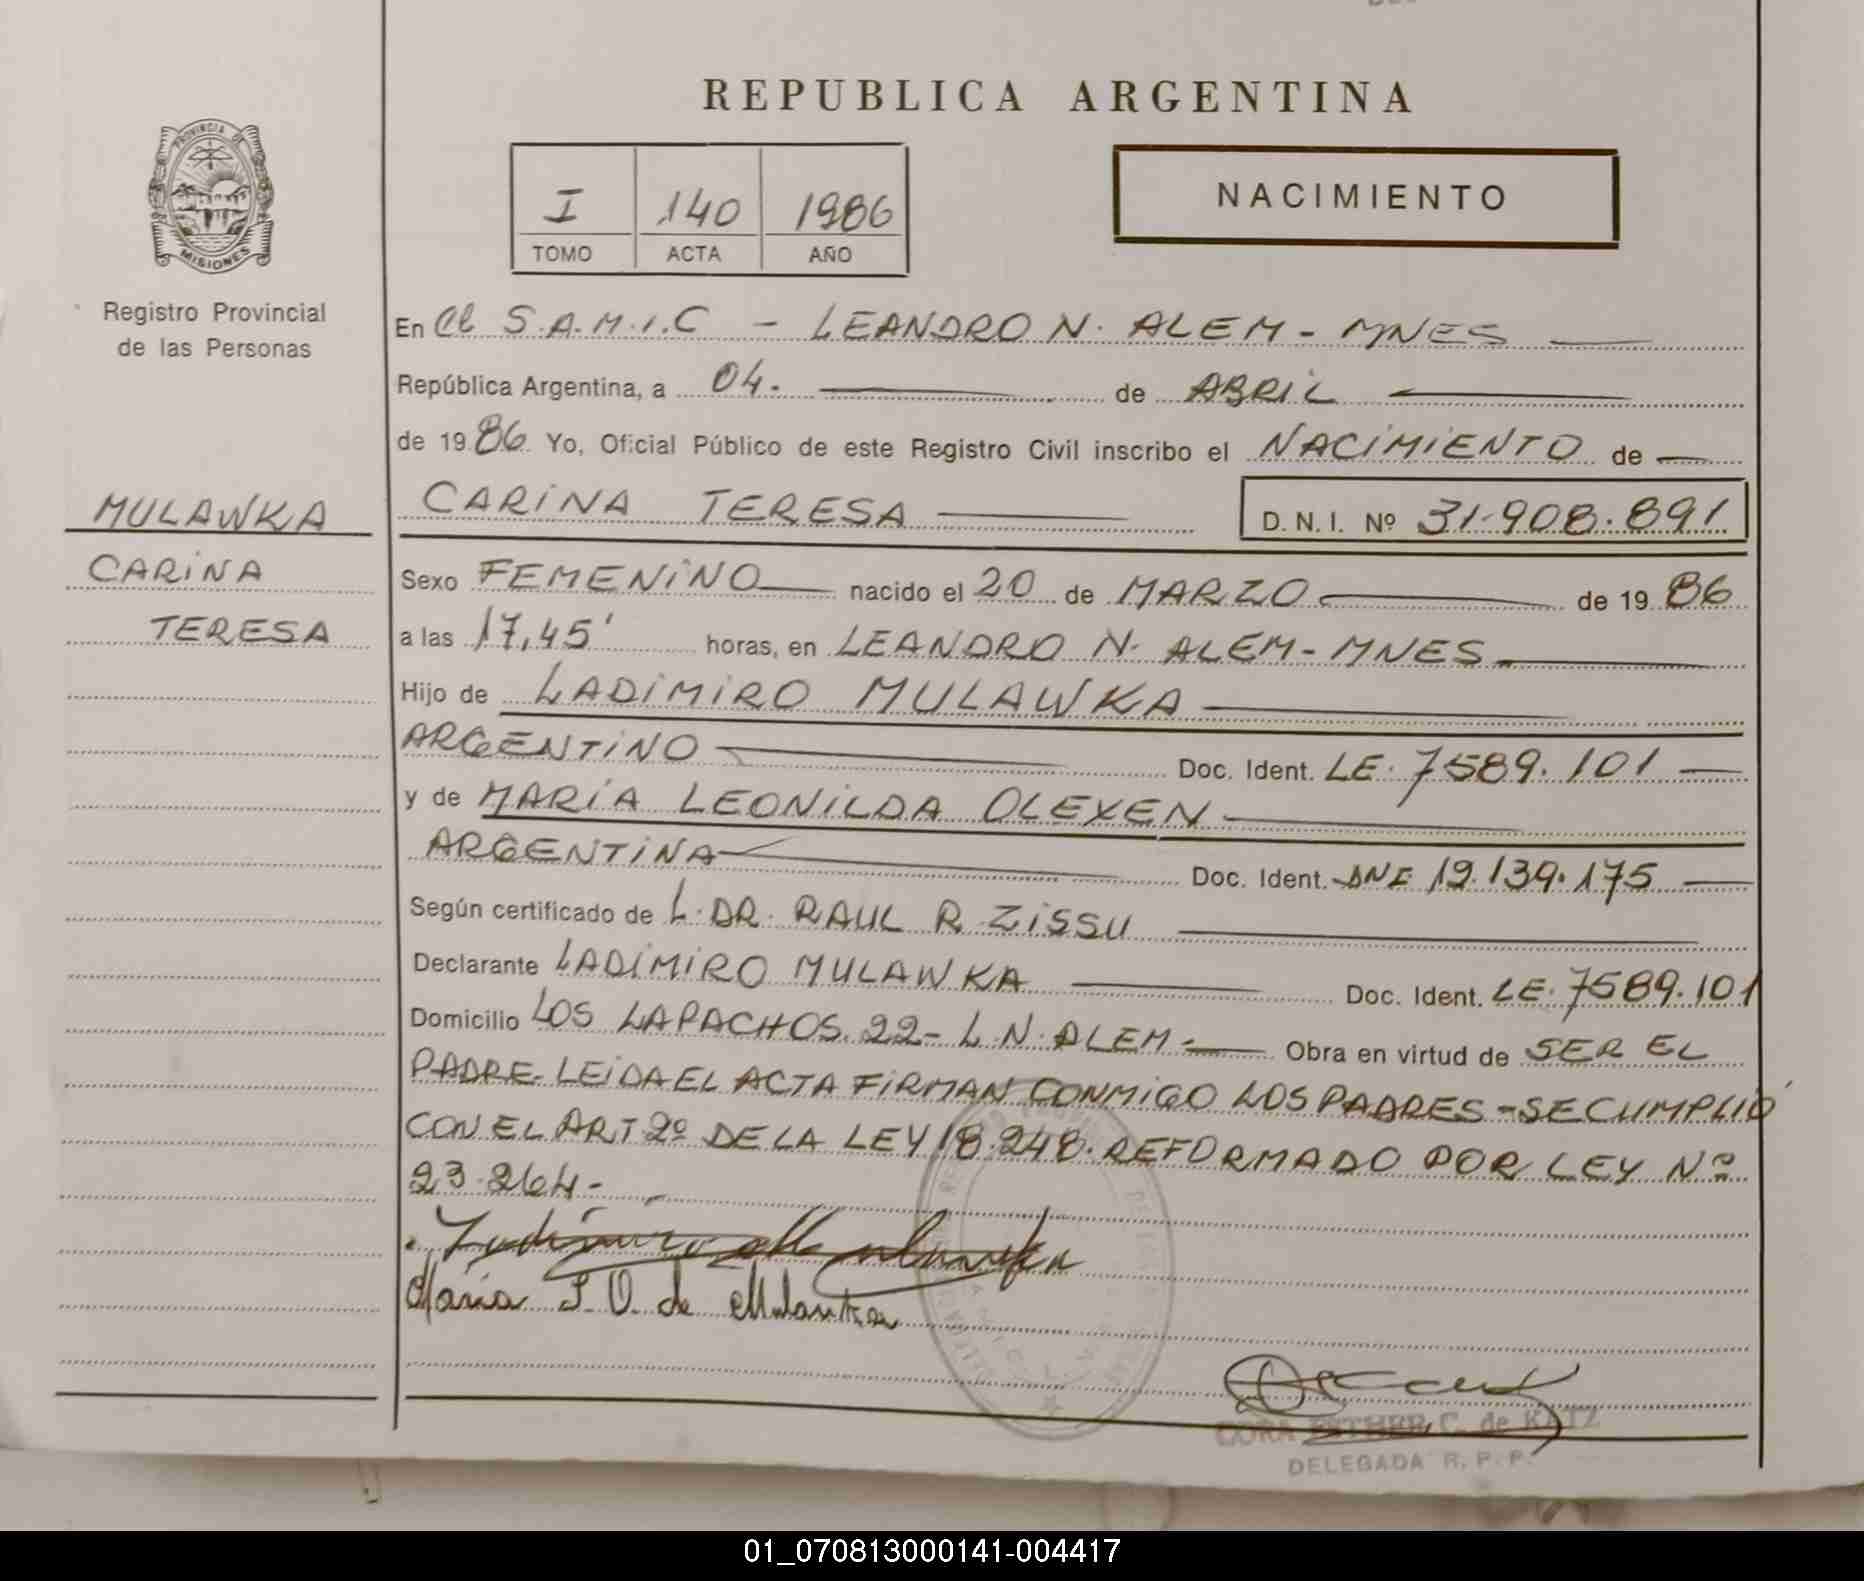 REPUBLICA ARGENTINA
PROVINCIA DE
MISIONES
Registro Provincial
de las Personas
I 140 1986
TOMO ACTA AÑO
NACIMIENTO
En el S.A.M.I.C - LEANDRO N. ALEM - MNES
República Argentina, a 04. de ABRIL
de 1986 Yo, Oficial Público de este Registro Civil inscribo el NACIMIENTO de
MULAWKA
CARINA
TERESA
CARINA TERESA D.N.I. Nº 31.908.891
Sexo FEMENINO nacido el 20 de MARZO de 1986
a las 17,45' horas, en LEANDRO N. ALEM - MNES.
Hijo de LADIMIRO MULAWKA
ARGENTINO Doc. Ident. LE. 7589.101
y de MARIA LEONILDA OLEXEN
ARGENTINA Doc. Ident. DNI 19.139.175
Según certificado de L. DR. RAUL R ZISSU
Declarante LADIMIRO MULAWKA Doc. Ident. LE. 7589.101
Domicilio LOS LAPACHOS. 22 - L.N. ALEM - Obra en virtud de SER EL
PADRE. LEIDA EL ACTA FIRMAN CONMIGO LOS PADRES - SE CUMPLIÓ
CON EL ART 2º DE LA LEY 18.248. REFORMADO POR LEY Nº
23.264 -
Ladimiro Mulawka
Maria L. O. de Mulawka
CORA ESTHER C. de KATZ
DELEGADA R. P. P.
01_070813000141-004417